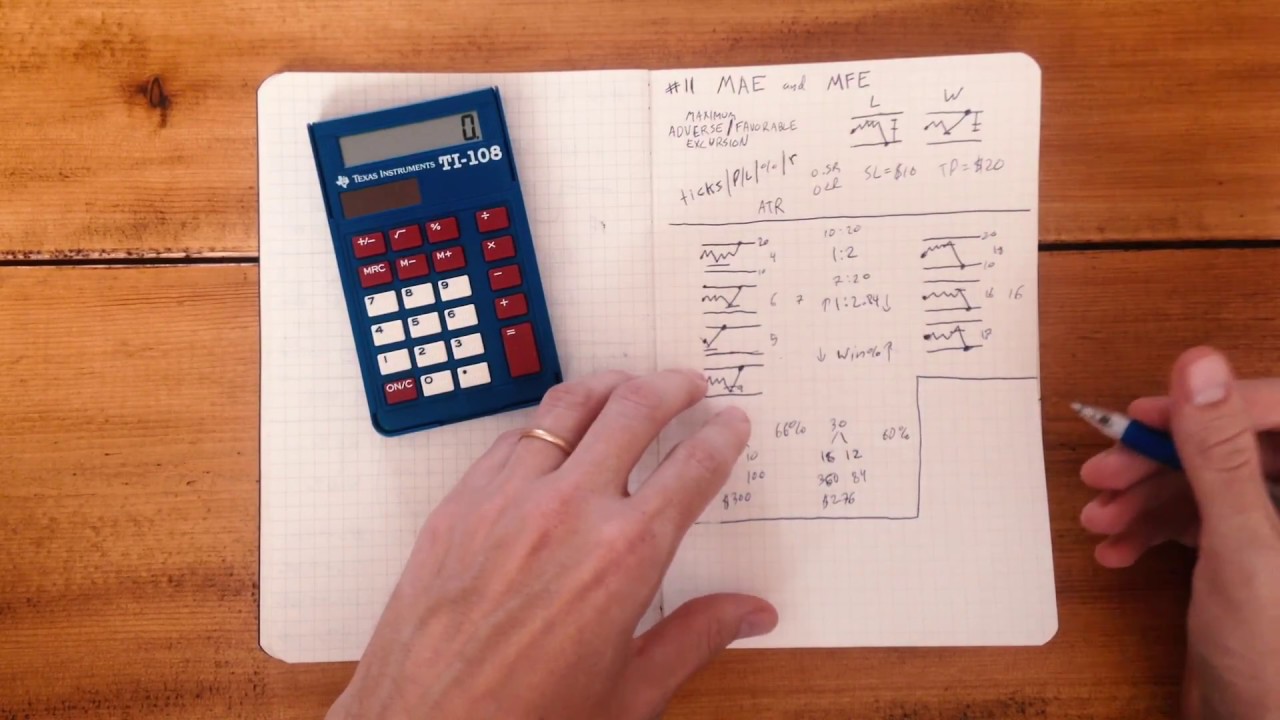 0.
TEXAS INSTRUMENTS TI-108
+/- √ % ÷
MRC M- M+ ×
7 8 9 −
4 5 6 +
1 2 3 =
ON/C 0 •
#11 MAE and MFE
MAXIMUM
ADVERSE/FAVORABLE
EXCURSION
L W
ticks/P/L/%/r
SL=$10 TP=$20
ATR
20
4
10
6 7
5
10:20
1:2
7:20
↑1:2.84↓
↓ Win%↑
20
18
10
16 16
17
66% 30 60%
10 18 12
100 360 84
$300 $276